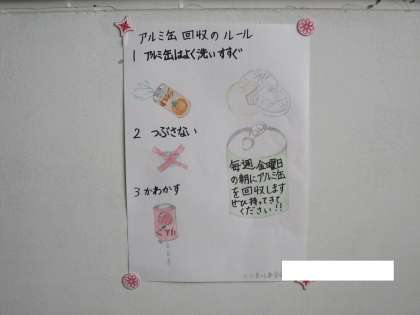 アルミ缶 回収のルール
1 アルミ缶はよく洗いすすぐ
2 つぶさない
3 かわかす
毎週 金曜日
の朝にアルミ缶
を回収します
ぜひ持ってきて
ください!!